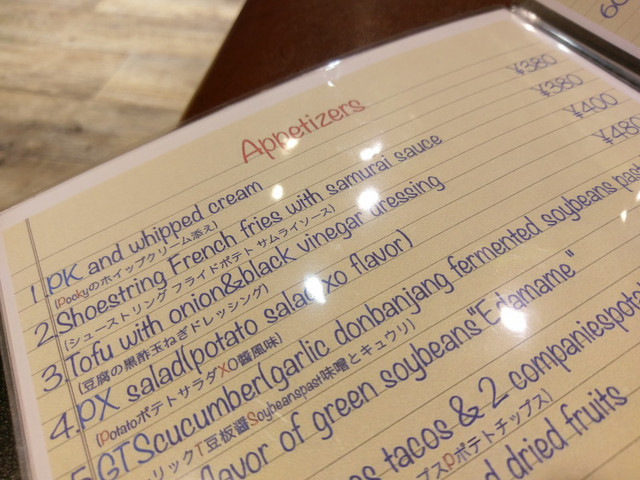 Appetizers
1.PK and whipped cream ¥380
(Pockyのホイップクリーム添え)
2.Shoestring French fries with samurai sauce ¥380
(シューストリング フライドポテト サムライソース)
3.Tofu with onion&black vinegar dressing ¥400
(豆腐の黒酢玉ねぎドレッシング)
4.PX salad(potato salad xo flavor) ¥480
(PotatoポテトサラダXO醬風味)
5.GTScucumber(garlic donbanjang fermented soybeans past
リックT豆板醤Soybeanspast味噌とキュウリ)
flavor of green soybeans"Edamame"
tacos & 2 companiespotat
プスPポテトチップス)
d dried fruits